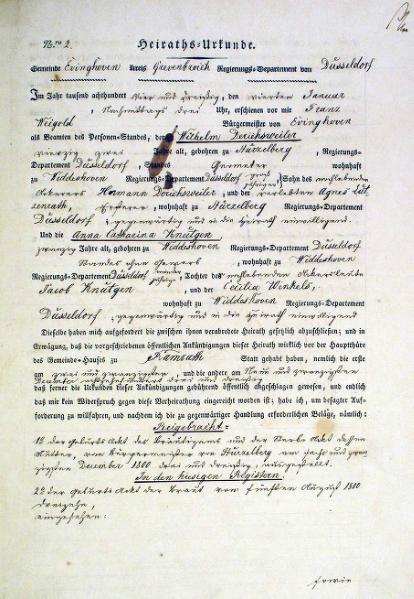 Nro 2.
Heiraths-Urkunde.
Gemeinde Evinghoven Kreis Grevenbroich Regierungs-Departement von Düsseldorf
Im Jahre tausend achthundert vier und dreißig, den vierten Januar
Nachmittags drei Uhr, erschienen vor mir Franz
Weigold Bürgermeister von Evinghoven
als Beamten des Personen-Standes, der Wilhelm Derichsweiler
vierzig zwei Jahre alt, gebohren zu Regierungs-
Departement Düsseldorf, Standes wohnhaft
zu Widdeshoven Regierungs-Departement Düsseldorf Sohn des
Ackerers Hermann Derichsweiler, und der Agnes
wohnhaft zu Regierungs-Departement
Düsseldorf, gegenwärtig und in die Heirath einwilligend.
Und die Anna Catharina Knützen
zwanzig Jahre alt, gebohren zu Widdeshoven Regierungs-Departement Düsseldorf
Standes ohne Gewerb wohnhaft zu Widdeshoven
Regierungs-Departement Düsseldorf, Tochter des
Jacob Knützen, und der Cecilia Winkels,
wohnhaft zu Widdeshoven Regierungs-Departement
Düsseldorf, gegenwärtig und in die Heirath einwilligend
Dieselbe haben mich aufgefordert die zwischen ihnen verabredete Heirath gesetzlich abzuschließen; und in
Erwägung, daß die vorgeschriebenen öffentlichen Ankündigungen dieser Heirath wirklich vor der Hauptthüre
des Gemeinde-Hauses zu Statt gehabt haben, nemlich die erste
am zwei und zwanzigsten und die andere am Neun und zwanzigsten
Dezember achtzehnhundert drei und dreißig,
daß ferner die Urkunden dieser Ankündigungen gebührend öffentlich angeschlagen gewesen, und endlich
daß mir kein Widerspruch gegen diese Verheirathung eingereicht worden ist; habe ich, um besagter Auf-
forderung zu willfahren, und nachdem ich die zu gegenwärtiger Handlung erforderlichen Beläge, nämlich:
Beigebracht:
der Geburts Akt des Bräutigams und der Sterbe Akt dessen
Mutter, vom Bürgermeister von am
December 1800 drei und dreißig, ausgestellt.
In den hiesigen Registern.
der Geburts Akt der Braut vom fünften August 1800
dreizehn,
eingesehen:
sowie